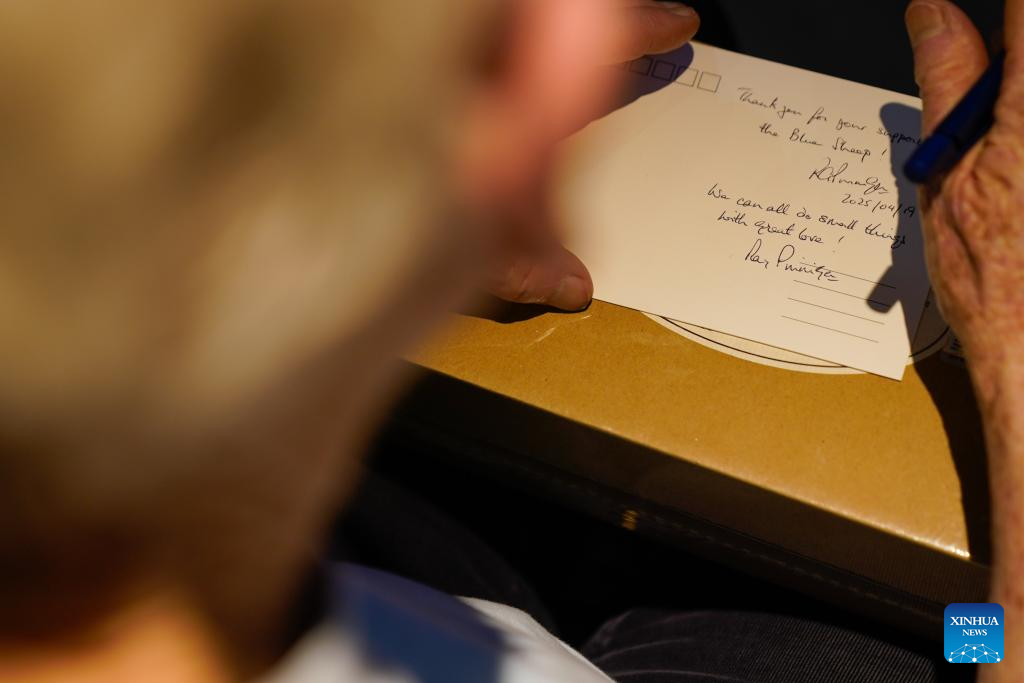 Thank you for your suppor
the Blue Sheep !
2025/04/19
We can all do small things
with great love !
Ray Pminiger
XINHUA
NEWS